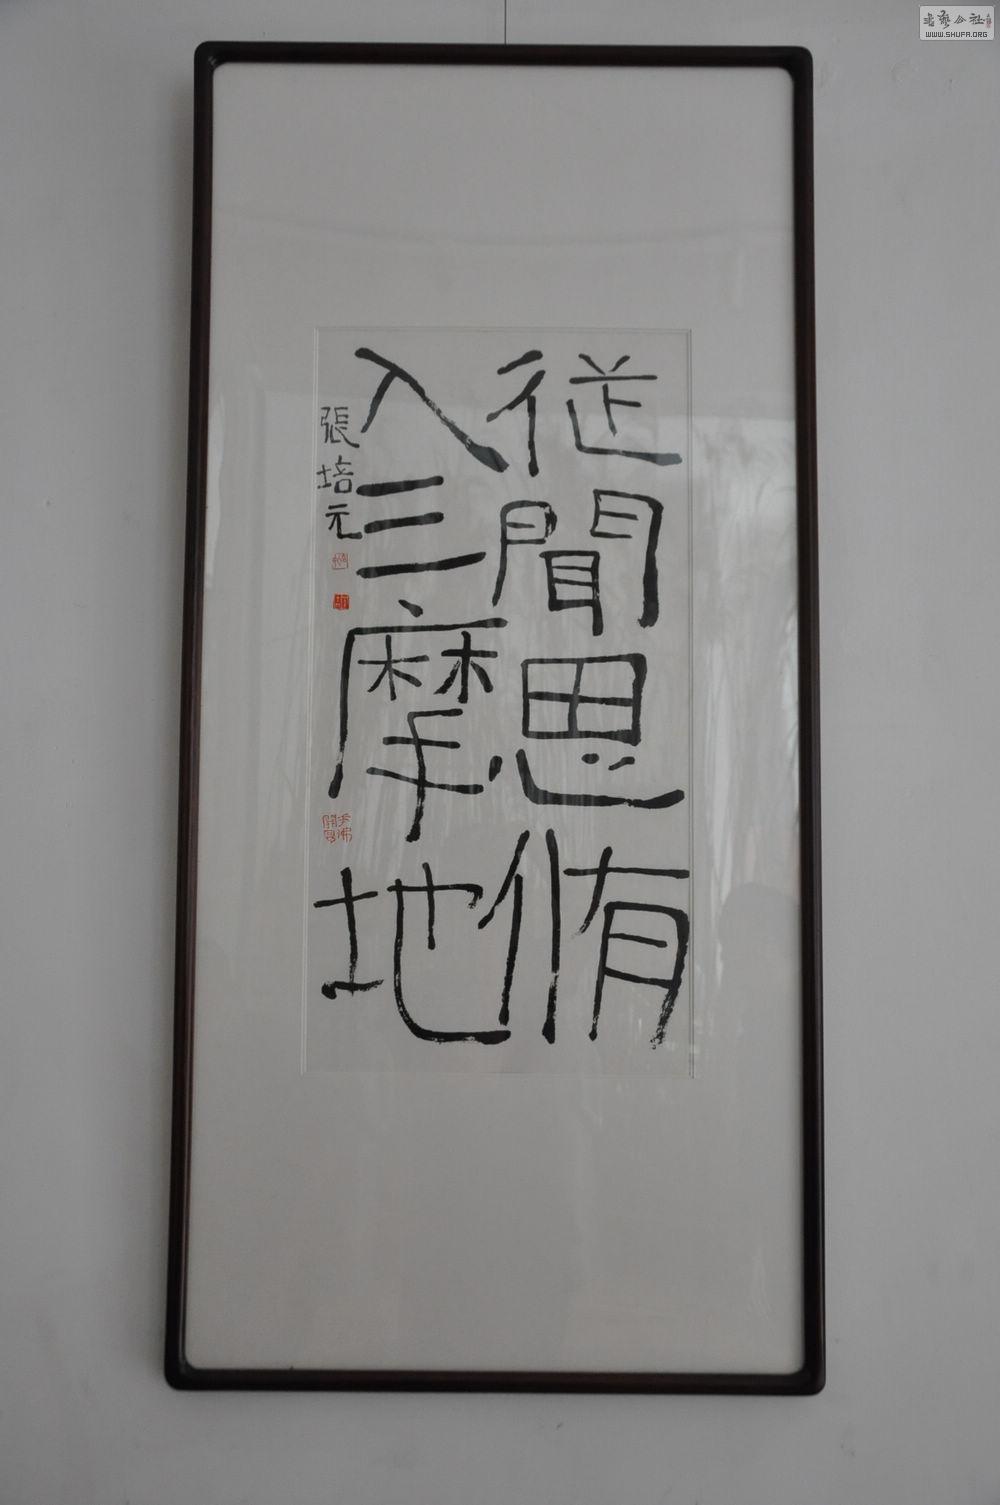 從聞思脩
入三摩地
張培元
书艺公社
WWW.SHUFA.ORG